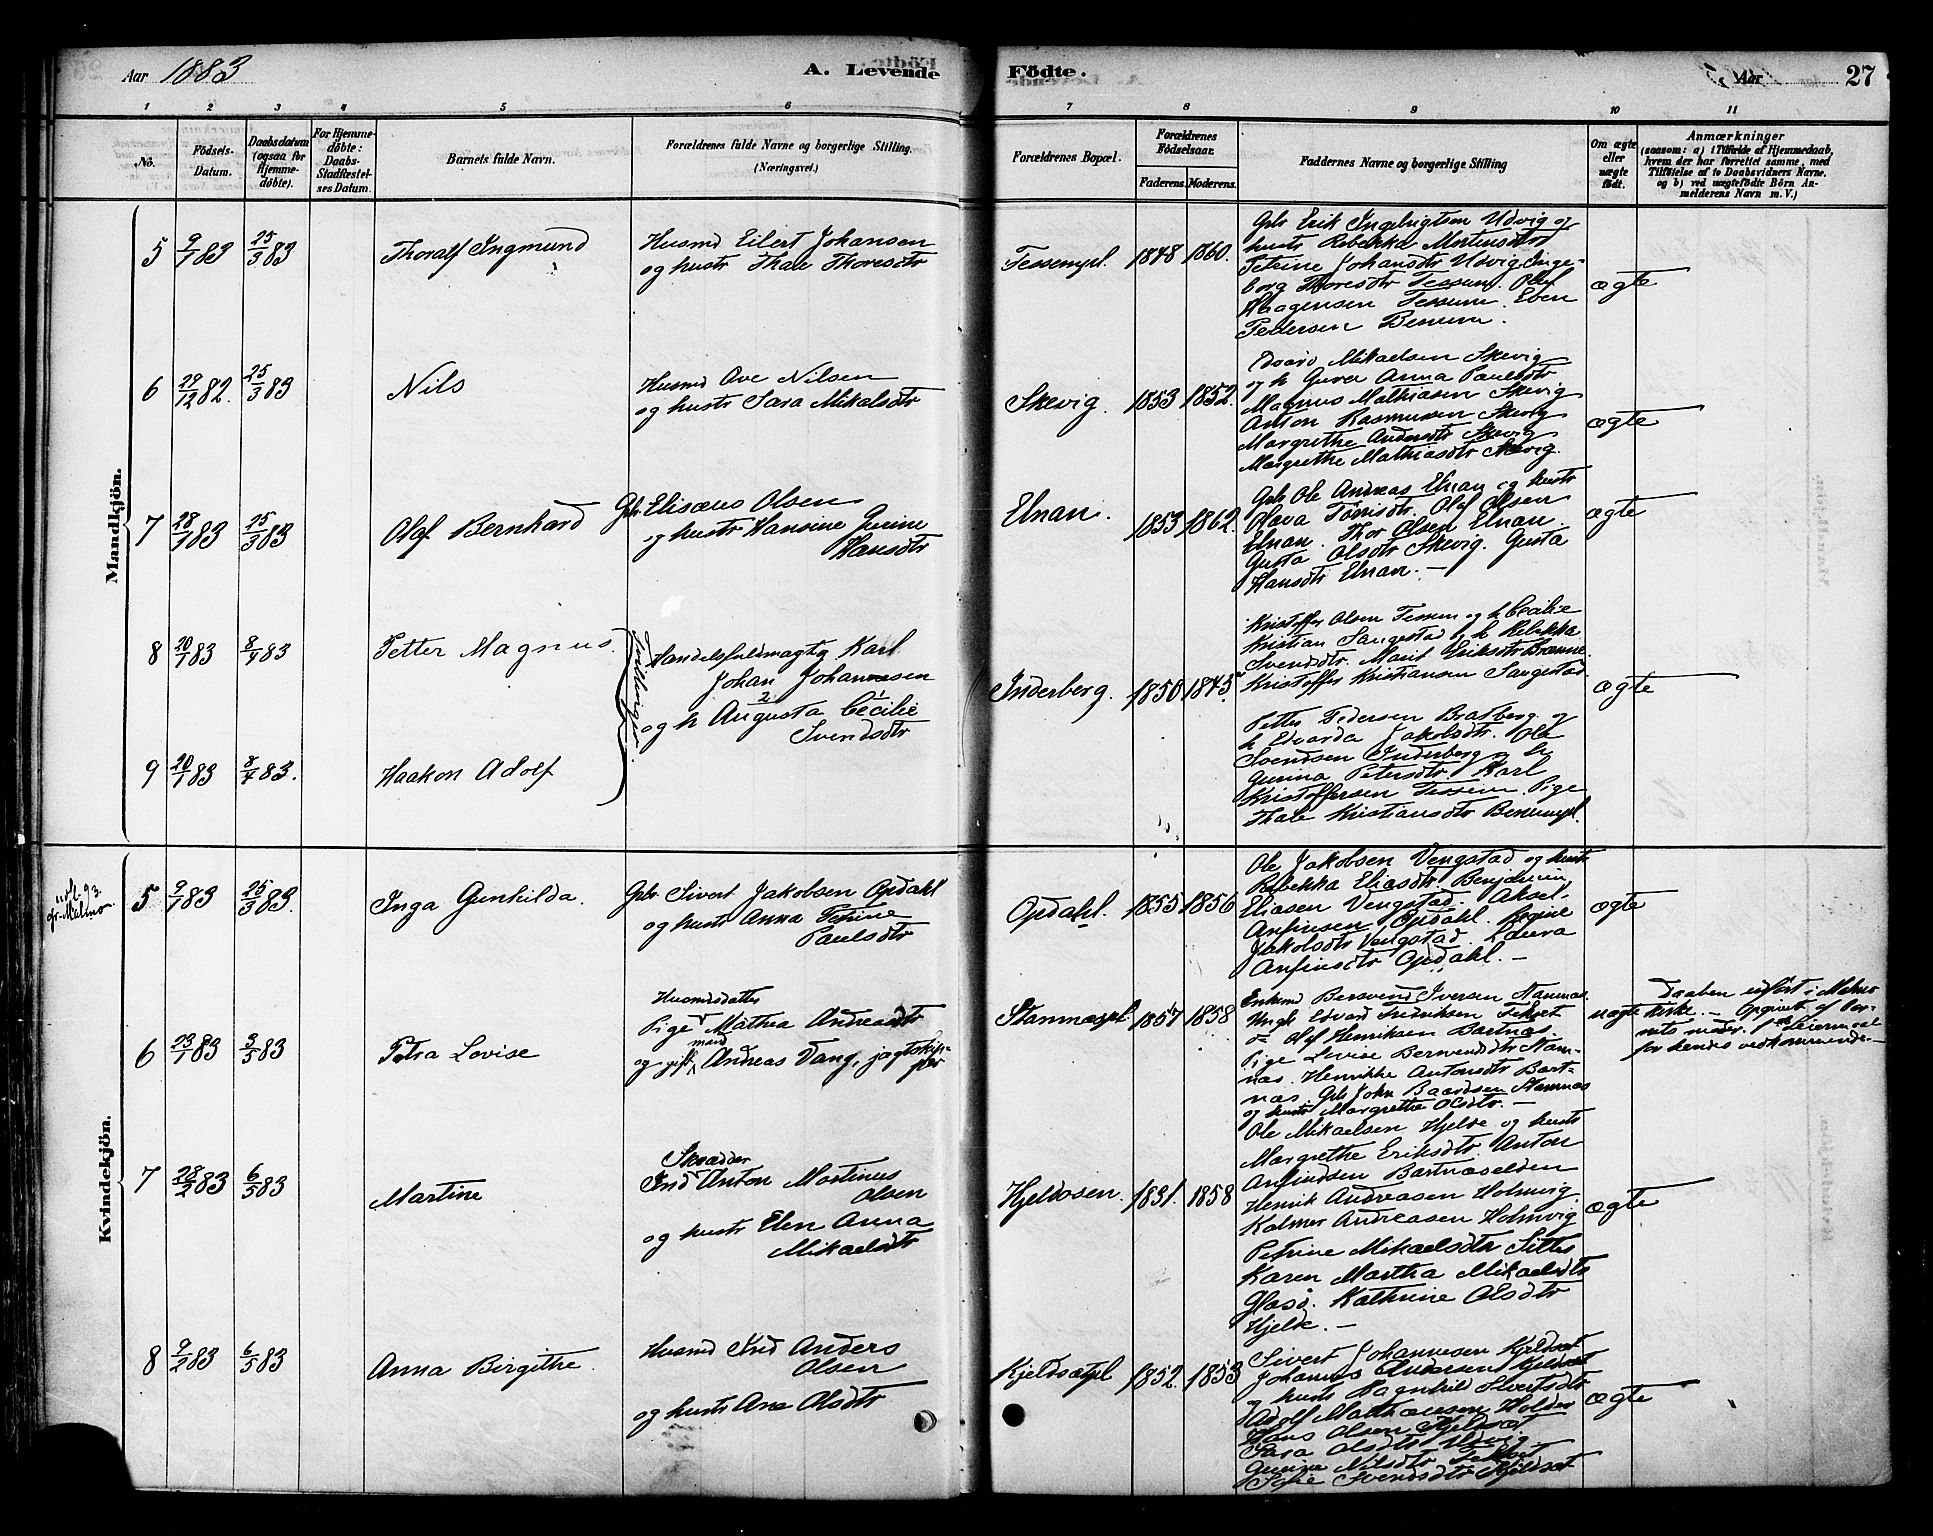 Aar 1883
A. Levende
Födte.
Aar
27
1 2 3 4 5 6 7 8 9 10 11
No.
Födsels-Datum.
Daabsdatum (ogsaa for Hjemme-döbte).
For Hjemme-döbte: Daabs-Stadfæstel-ses Datum.
Barnets fulde Navn.
Forældrenes fulde Navne og borgerlige Stilling.
(Næringsvei.)
Forældrenes Bopæl.
Forældrenes Födselsaar.
Faderens. Moderens.
Faddernes Navne og borgerlige Stilling
Om ægte eller uægte födt.
Anmærkninger
(saasom: a) i Tilfælde af Hjemmedaab,
hvem der har forrettet samme, med
Tilföielse af to Daabsvidners Navne.
og b) ved uægtefödte Börn An-
melderens Navn m. V.)
Mandkjön.
5 9/1 83 25/3 83 Thoralf Ingmund
Husmd Eilert Johansen
og hustr Thale Thoresdtr
Tessempl. 1848 1860.
Gbr Erik Ingebrigtsen Udvig og
hustr Rebekka Mortensdtr
Petrine Johansdtr Udvig Inge-
borg Thoresdtr Tessum. Olef
Haagensen Tessum. Eben
Pedersen Benum.
ægte
6 29/12 82. 25/3 83 Nils
Husmd Ove Nilsen
og hustr Sara Mikalsdtr
Skevig. 1853 1852.
Edvard Mikaelsen Skevig
og h Gurea Anna Paulsdtr
Magnus Mathiasen Skevig
Anton Rasmussen Skevig
Margrethe Andersdtr Skevig
Margrethe Mathiasdtr Skevig.
ægte
7 28/1 83 25/3 83 Olaf Bernhard
Gbr Elisæus Olsen
og hustr Hansine Gurine
Hansdtr
Elnan. 1853 1862.
Gbr Ole Andreas Elnan og hustr
Olava Tönisdtr. Olef Olsen
Elnan. Thor Olsen Elnan.
Gusta Olsdtr Skevig. Gusta
Hansdtr Elnan. —
ægte
8 20/1 83 8/4 83 Petter Magnus
Tvillinger
Handelsfuldmægtig Karl
Johan Johannesen
og h Augusta Cecilie
2 1
Svendsdtr
Inderberg. 1850 1845.
Kristoffer Olsen Tessem og h Cecilie
Kristian Saugestad og h Rebekka
Svendsdtr. Marit Eriksdtr Brænne.
Kristoffer Kristiansen Saugestad
ægte
9 20/1 83 8/4 83. Haakon Adolf
Petter Pedersen Bratberg og
h Edvarda Jakobsdtr. Ole
Svendsen Inderberg og h
Gurina Petersdtr. Karl
Kristoffersen Tessem. Pige
Thale Kristiansdtr Benumpl.
Kvindekjön.
5 9/1 83 25/3 83. Inga Gunhilda.
Gbr Sivert Jakobsen Opdahl
og hustr Anna Petrine
Paulsdtr
Opdahl. 1855 1856
Ole Jakobsen Vengstad og hustr
Rebekka Eliasdtr. Benjamin
Eliasen Vengstad. Aksel
Anfinsen Opdahl. Regine
Jakobsdtr Vengstad. Laura
Anfinsdtr Opdahl. —
ægte
6 23/1 83 3/5 83 Petra Lovise
Husmdsdatter
Pige Mathea Andreasdtr
og gift mand Andreas Vang, jagtskip-
per
Stamnæspl. 1857 1858
Enkemd Bersvend Iversen Stamnæs.
Ungk Edvard Fredriksen Tekset
" Olef Henriksen Bartnæs.
Pige Lovise Bersvendsdtr Stam-
næs. Henrikke Antonsdtr Bart-
næs. Gbr John Baardsen Stamnæs
og hustr Margrethe Olsdtr. —
uægte
Daaben udfört i Malmo
kirke. — Opgivet af bar-
nets moder. 1ste Leiermaal
for hendes vedkommende. —
7 28/2 83 6/5 83 Martine
Skrædder
Ind Anton Martinus
Olsen
og hustr Elen Anna
Mikaelsdtr
Hjeldosen. 1831. 1858
Ole Mikaelsen Hjelde og hustr
Margrethe Eriksdtr. Anton
Anfindsen Bartnæselden
Henrik Andreasen Holmvig.
Kalmer Andreasen Holmvig
Petrine Mikaelsdtr Sitter
Karen Martha Mikaelsdtr
Glasö. Kathrine Olsdtr
Hjelde. —
ægte
8 9/2 83 6/5 83 Anna Birgithe.
Husmd Ind Anders
Olsen
og hustr Ane Olsdtr
Kjeldsætpl 1852. 1853
Sivert Johannesen Kjeldsæt
Johannes Andersen Kjeldsæt
og hustr Ragnhild Sivertsdtr
Adolf Mathæusen Holden
Hans Olsen Kjeldsæt
Sara Olsdtr Udvig.
Gurine Nilsdtr Tekset
Sofie Svendsdtr Kjeldset
ægte